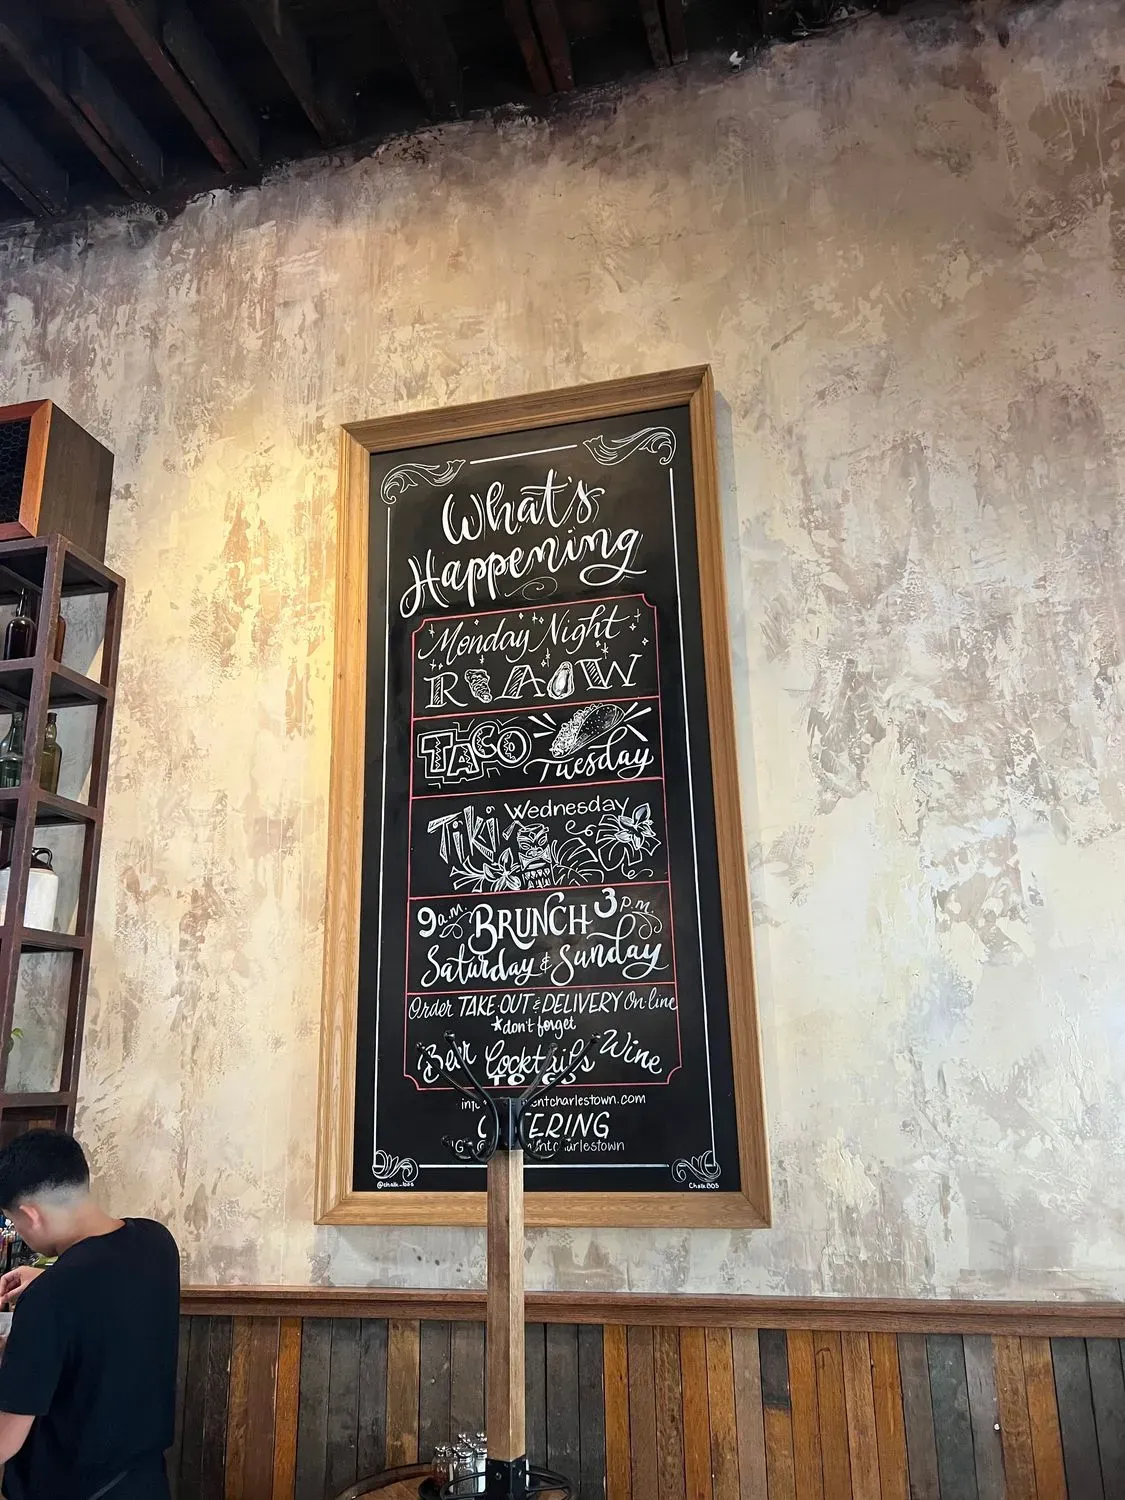 What's
Happening
Monday Night
RAW
TACO
Tuesday
Wednesday
Tiki
9a.m. BRUNCH 3p.m.
Saturday & Sunday
Order TAKE-OUT & DELIVERY On-line
*don't forget
Beer Cocktails Wine
TO GO
charlestown.com
charlestown
@chalk_bos
ChalkBOS